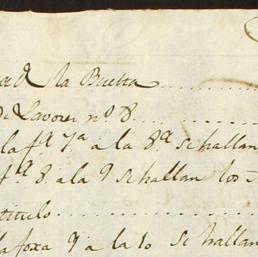 la Buetta
de Lavores nº 8.
la fª 7ª a la 8ª se hallan
fª 8. a la 9 se hallan los
titulo
la foxa 9 a la 10 se hallan